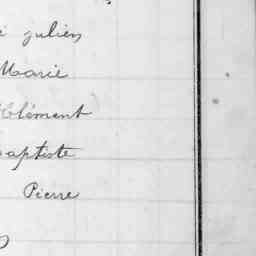 julien
Marie
Clément
aptiste
Pierre